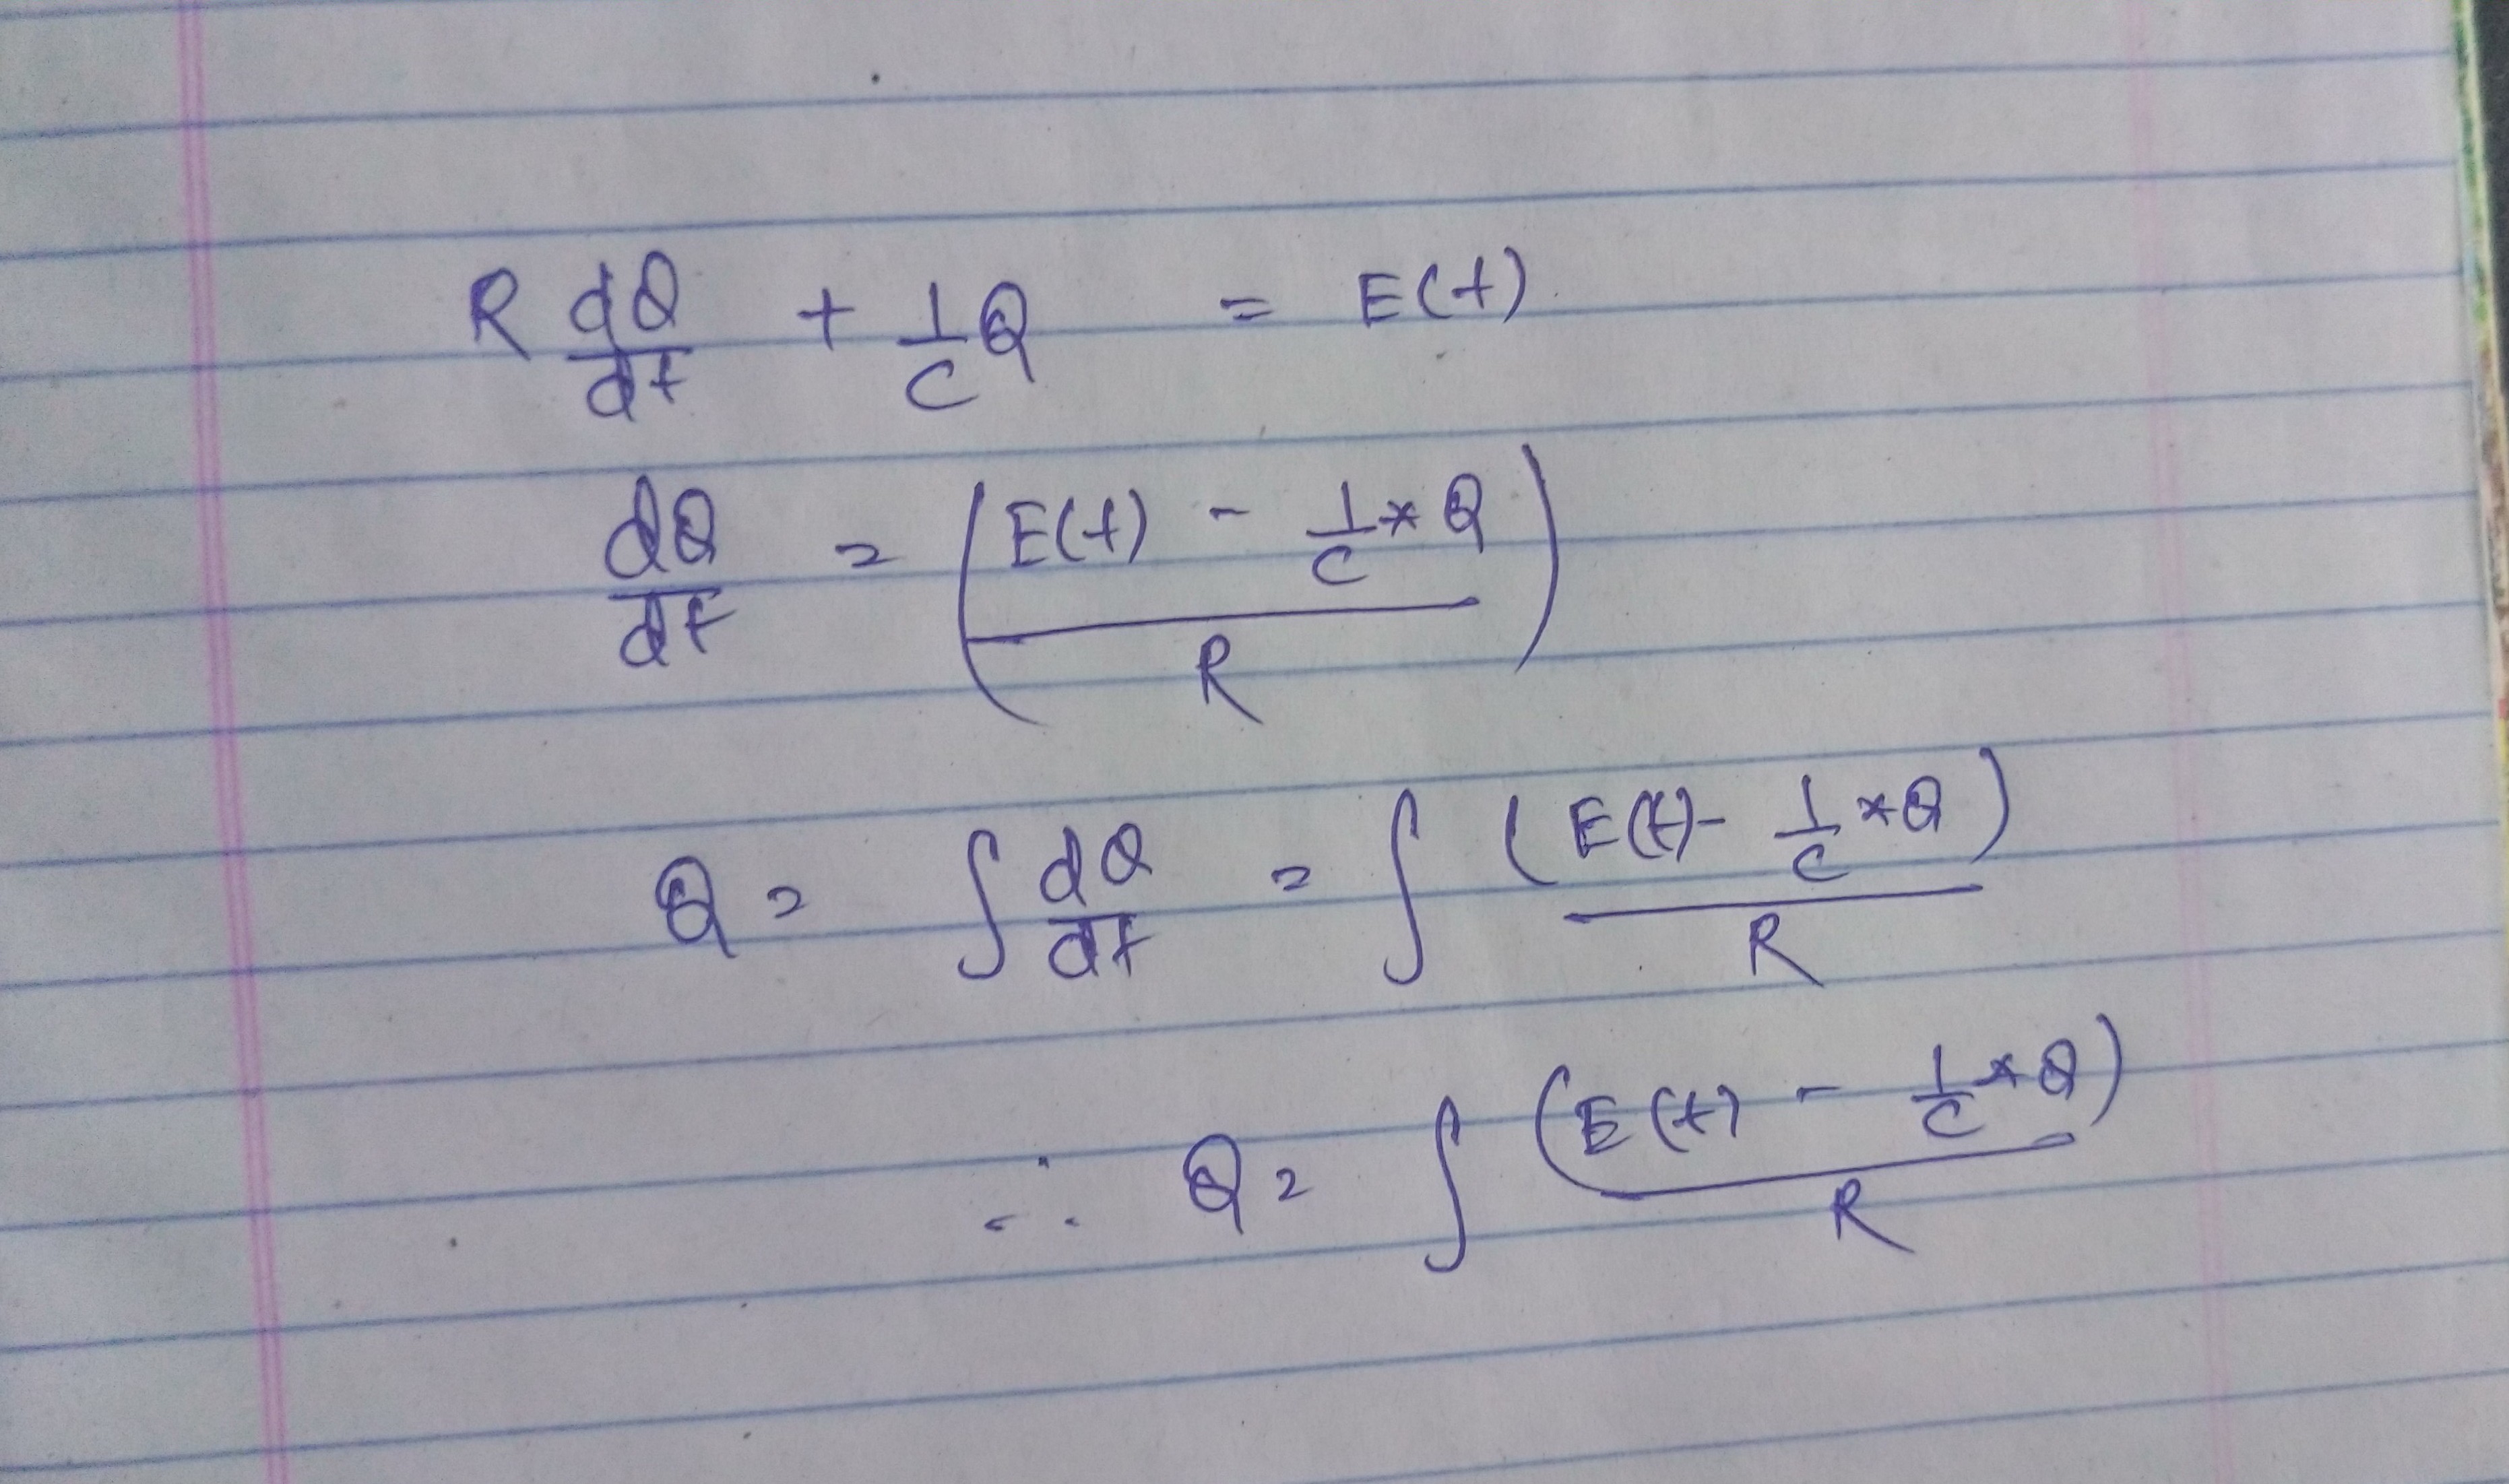 R dQ/dt + 1/C Q = E(t)
dQ/dt = ( (E(t) - 1/C * Q) / R )
Q = ∫ dQ/dt = ∫ (E(t) - 1/C * Q) / R
∴ Q = ∫ (E(t) - 1/C * Q) / R